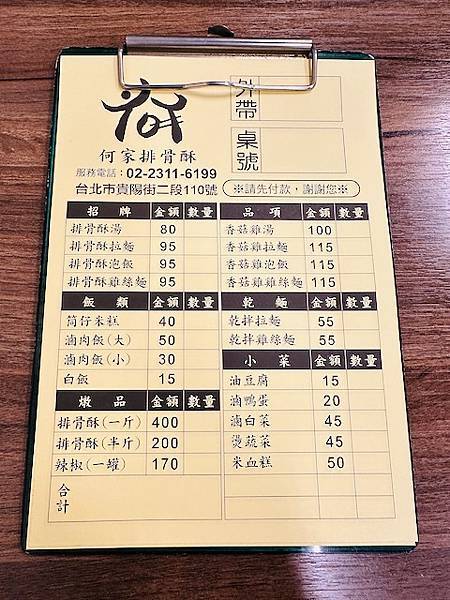 外帶
桌號
何家排骨酥
服務電話：02-2311-6199
台北市貴陽街二段110號
※請先付款，謝謝您※
招牌 金額 數量
排骨酥湯 80
排骨酥拉麵 95
排骨酥泡飯 95
排骨酥雞絲麵 95
飯類 金額 數量
筒仔米糕 40
滷肉飯(大) 50
滷肉飯(小) 30
白飯 15
燉品 金額 數量
排骨酥(一斤) 400
排骨酥(半斤) 200
辣椒(一罐) 170
合計
品項 金額 數量
香菇雞湯 100
香菇雞拉麵 115
香菇雞泡飯 115
香菇雞雞絲麵 115
乾麵 金額 數量
乾拌拉麵 55
乾拌雞絲麵 55
小菜 金額 數量
油豆腐 15
滷鴨蛋 20
滷白菜 45
燙蔬菜 45
米血糕 50